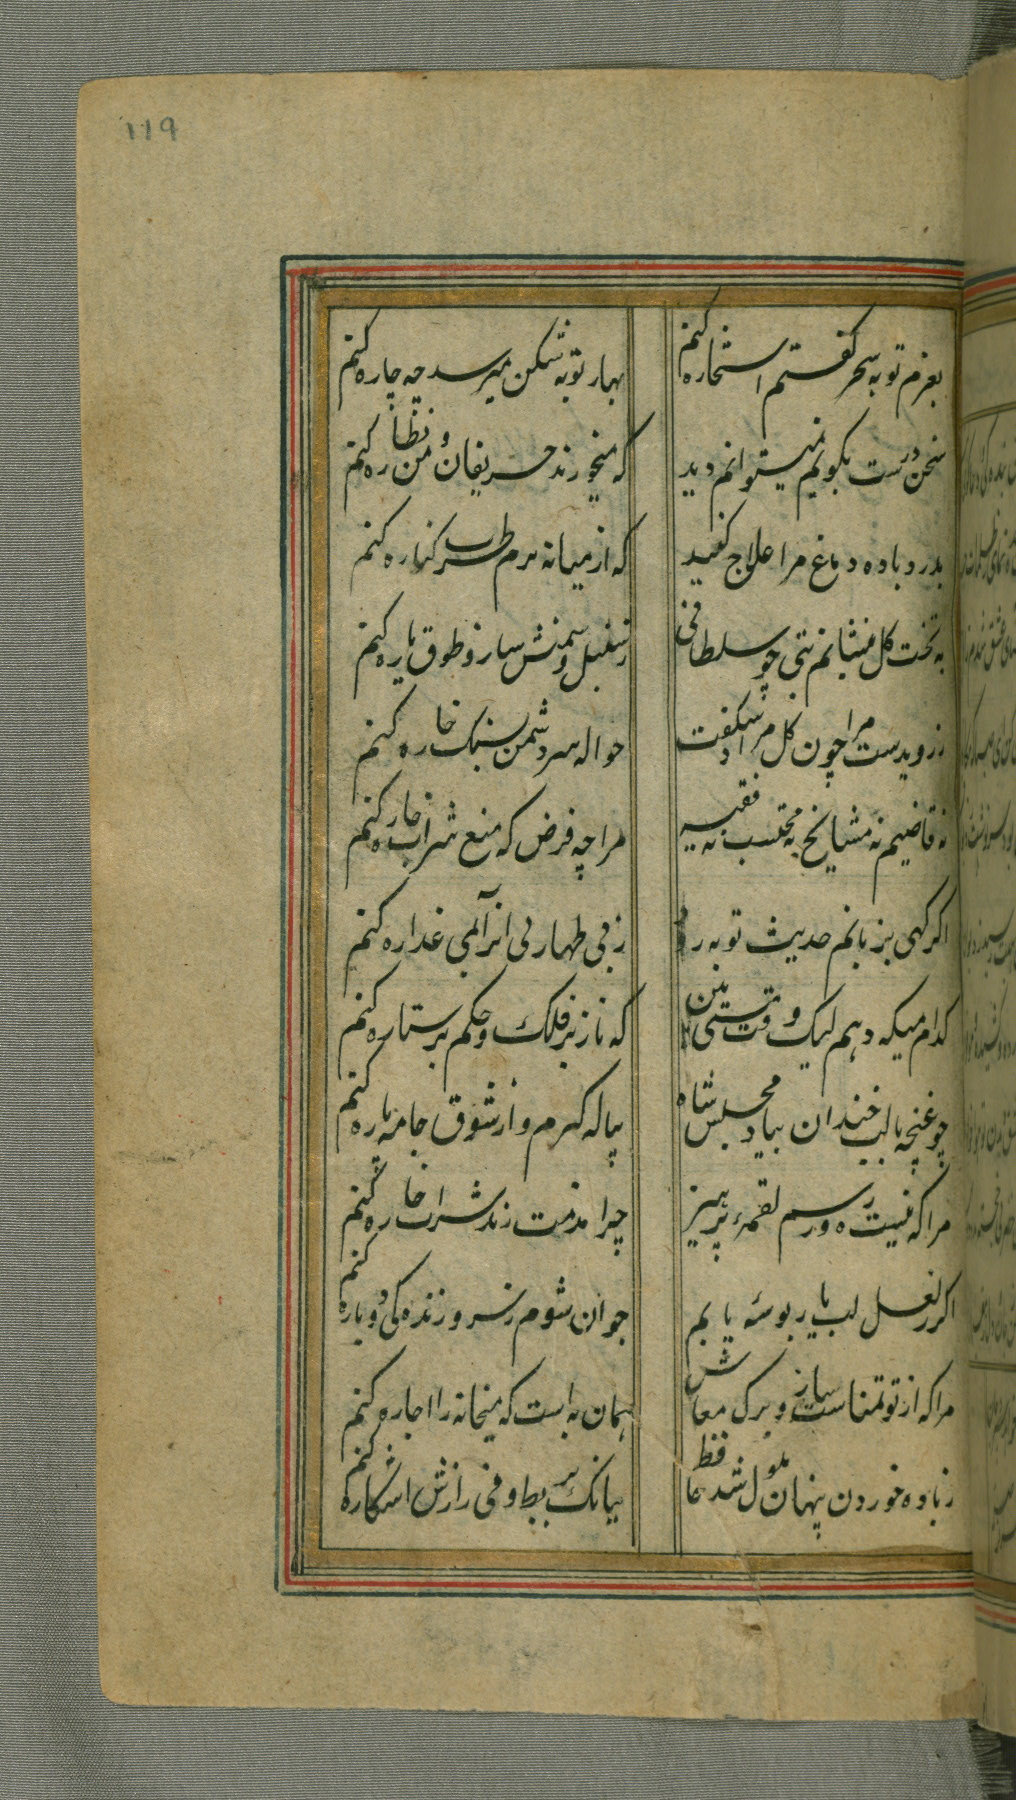 119
بعزم توبه سحر کفتم استخاره کنم
بهار توبه شکن میرسد چه چاره کنم
سخن درست بکویم نمیتوانم دید
که میخورند حریفان و من نظاره کنم
بدرد باده دماغ مرا علاج کنید
که از میانه بزم طرب کناره کنم
به تخت کل بنشانم بتی چو سلطانی
ز سنبل و سمنش ساز و طوق یاره کنم
ز روی دست مرا چون کل مراد شکفت
حواله سر دشمن بسنک خاره کنم
نه قاضیم نه مشایخ نه محتسب نه فقیر
مرا چه فرض که منع شراب خاره کنم
اکر کهی بزبانم حدیث توبه رود
ز بی طهارتی انرا بمی غداره کنم
کدای میکده ام لیک وقت مستی بین
که ناز بر فلک و حکم بر ستاره کنم
چو غنچه با لب خندان بیاد مجلس شاه
پیاله کیرم و از شوق جامه پاره کنم
مرا که نیست ره و رسم لقمه پرهیز
چرا مذمت رند شراب خاره کنم
اکر ز لعل لب یار بوسه یابم
جوان شوم ز سر و زندکی دوباره کنم
مرا که از تو تمناست ساز و برک معاش
همان به است که میخانه را اجاره کنم
ز باده خوردن پنهان ملول شد حافظ
ببانک بربط و نی رازش اشکاره کنم